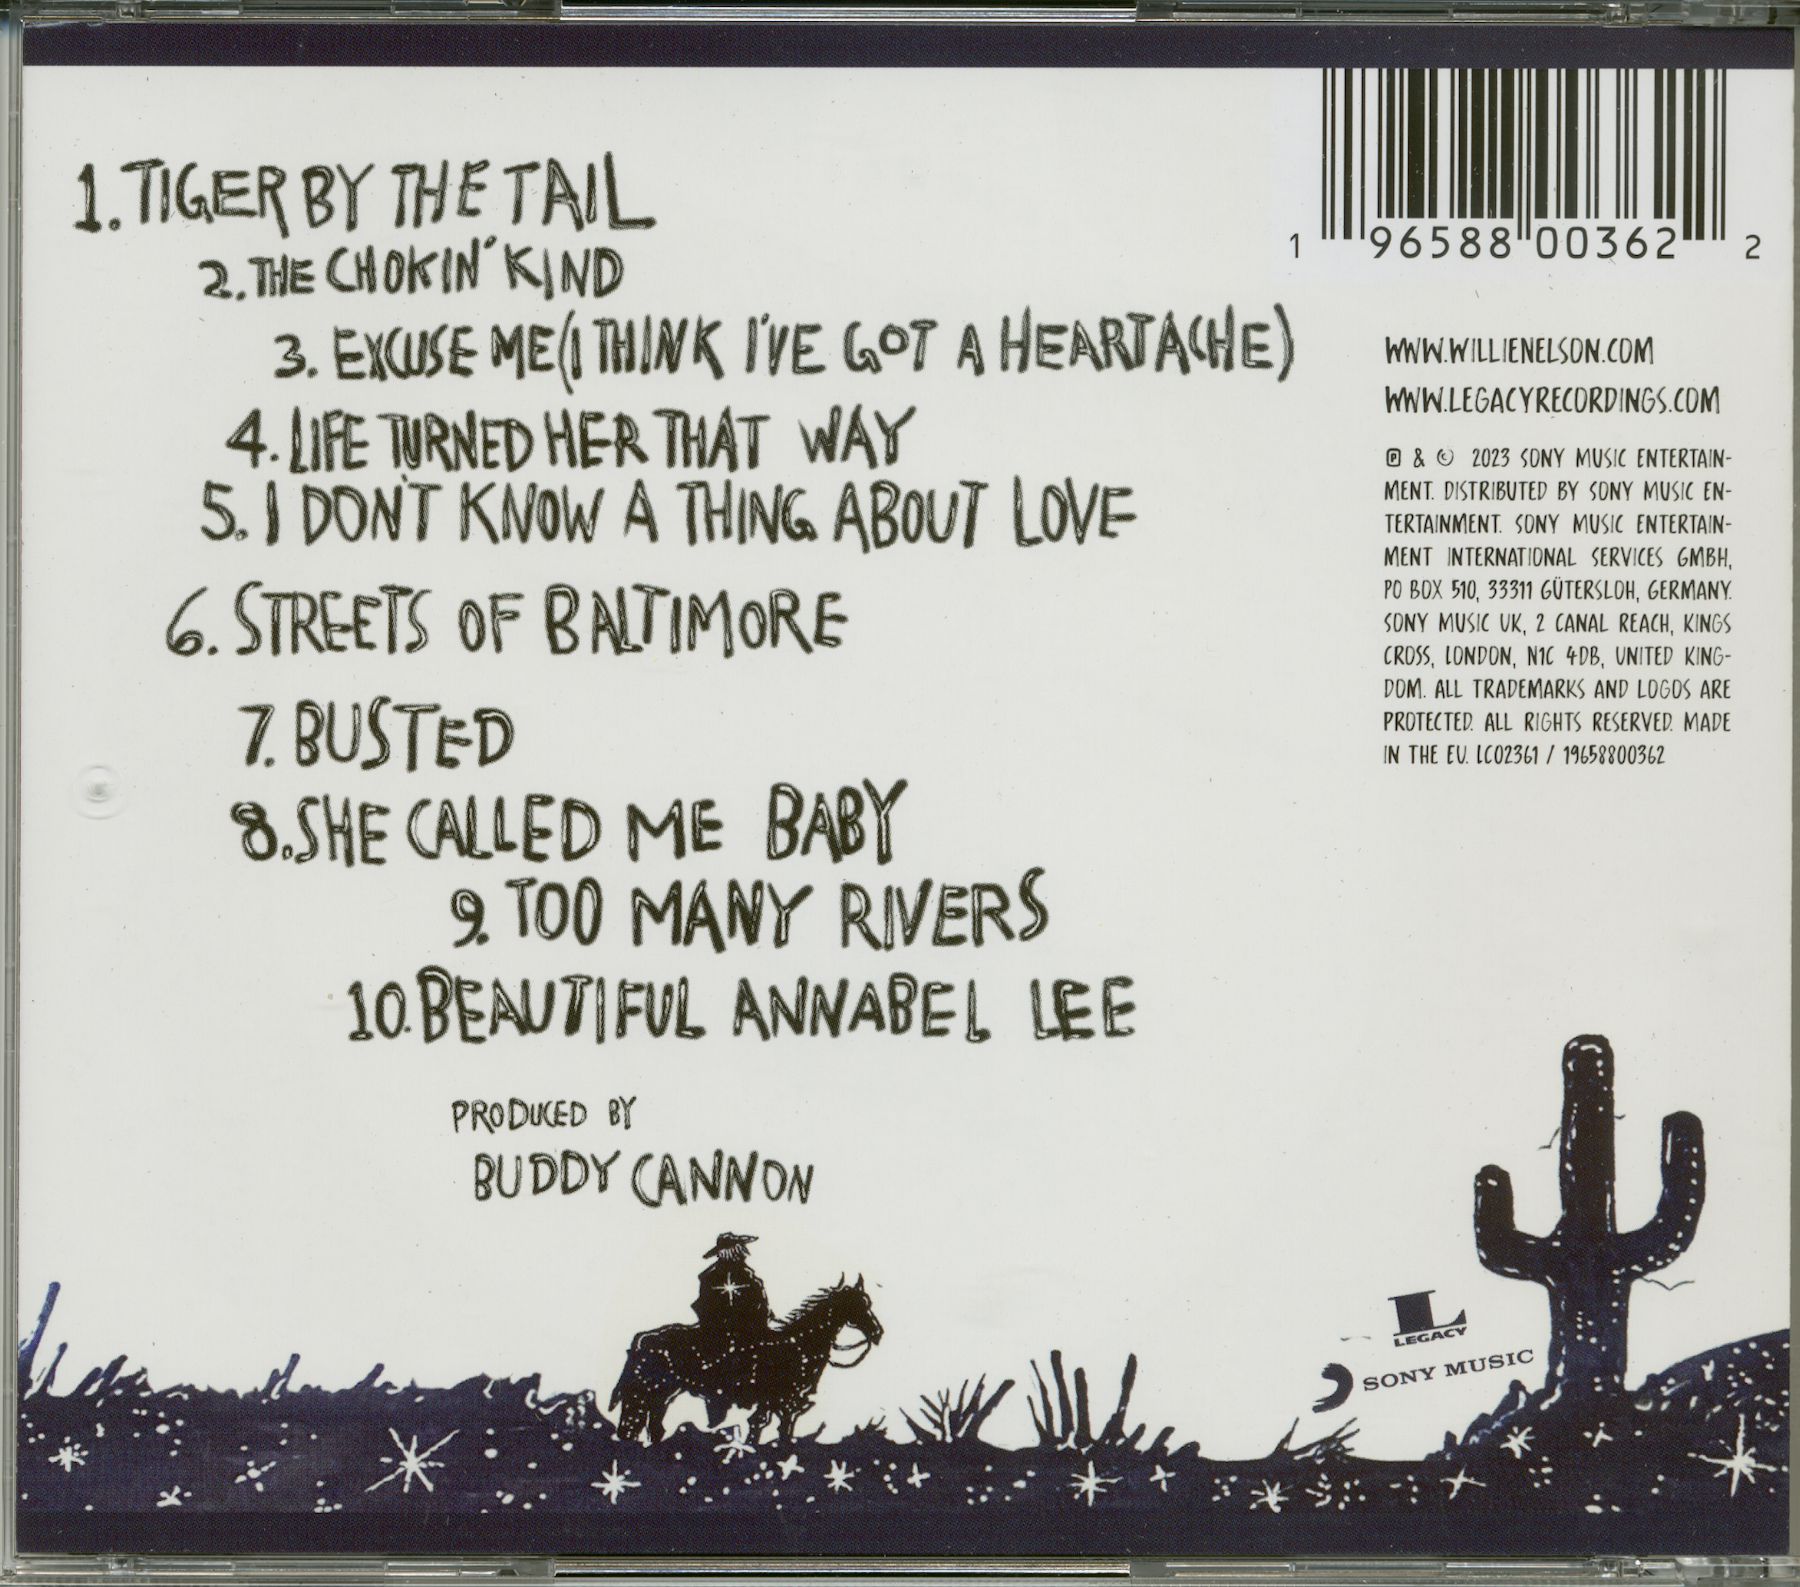 1. TIGER BY THE TAIL
2. THE CHOKIN' KIND
3. EXCUSE ME (I THINK I'VE GOT A HEARTACHE)
4. LIFE TURNED HER THAT WAY
5. I DON'T KNOW A THING ABOUT LOVE
6. STREETS OF BALTIMORE
7. BUSTED
8. SHE CALLED ME BABY
9. TOO MANY RIVERS
10. BEAUTIFUL ANNABEL LEE
PRODUCED BY
BUDDY CANNON
1 96588 00362 2
WWW.WILLIENELSON.COM
WWW.LEGACYRECORDINGS.COM
℗ & © 2023 SONY MUSIC ENTERTAIN-
MENT. DISTRIBUTED BY SONY MUSIC EN-
TERTAINMENT. SONY MUSIC ENTERTAIN-
MENT INTERNATIONAL SERVICES GMBH,
PO BOX 510, 33311 GÜTERSLOH, GERMANY.
SONY MUSIC UK, 2 CANAL REACH, KINGS
CROSS, LONDON, N1C 4DB, UNITED KING-
DOM. ALL TRADEMARKS AND LOGOS ARE
PROTECTED. ALL RIGHTS RESERVED. MADE
IN THE EU. LC02361 / 19658800362
L
LEGACY
SONY MUSIC